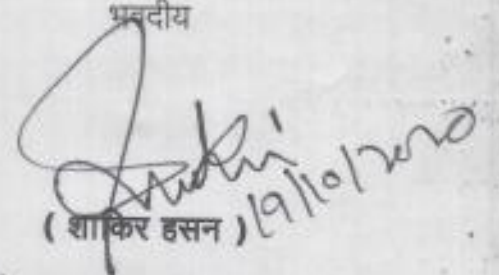 भवदीय
19/10/2020
( शाकिर हसन )